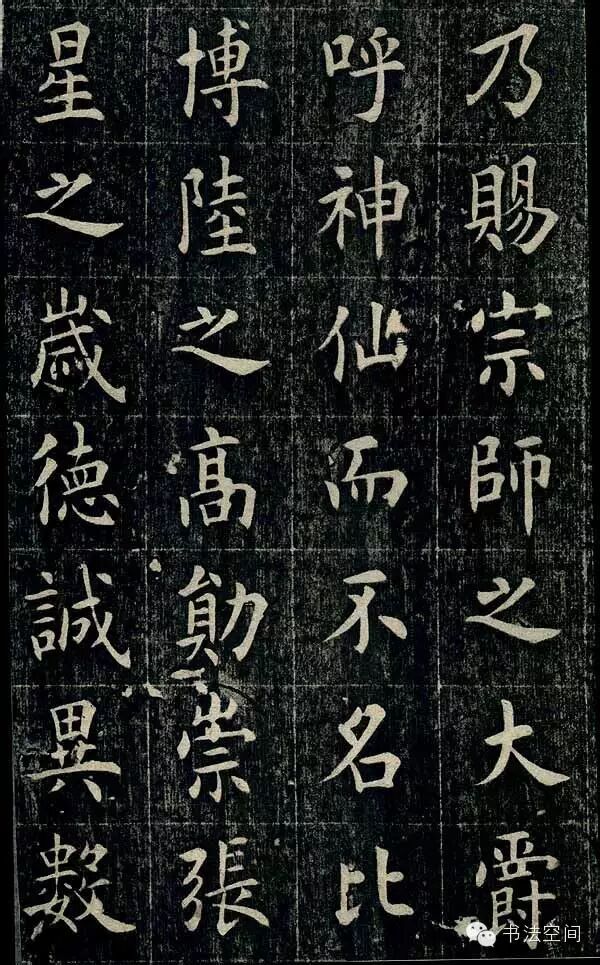 乃賜宗師之大爵
呼神仙而不名比
博陸之高勛崇張
星之歲德誠異數
书法空间